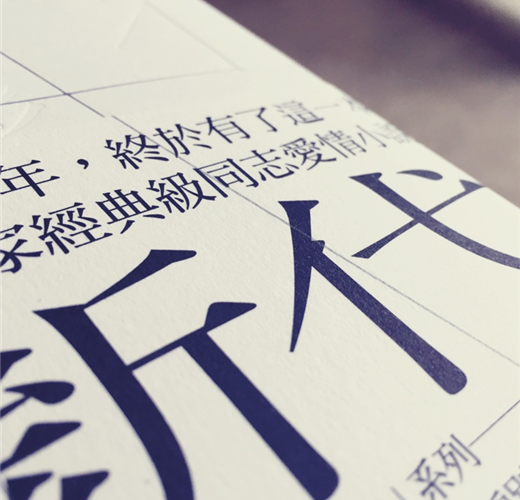 年，終於有了這一
家經典級同志愛情小說
新代
系列